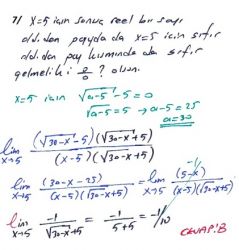 7/ x=5 için sonuç reel bir sayı
olduğundan payda da x=5 için sıfır
olduğundan pay kısmında da sıfır
gelmeli ki 0/0 ? olsun.
x=5 için √(a-5) - 5 = 0
√(a-5) = 5 → a-5 = 25
a=30
lim x→5 (√(30-x) - 5)(√(30-x) + 5) / (x-5)(√(30-x) + 5)
lim x→5 (30-x-25) / (x-5)(√(30-x) + 5) = lim x→5 (5-x) / (x-5)(√(30-x) + 5) -1
lim x→5 -1 / (√(30-x) + 5) = -1 / (5+5) = -1/10
CEVAP:B